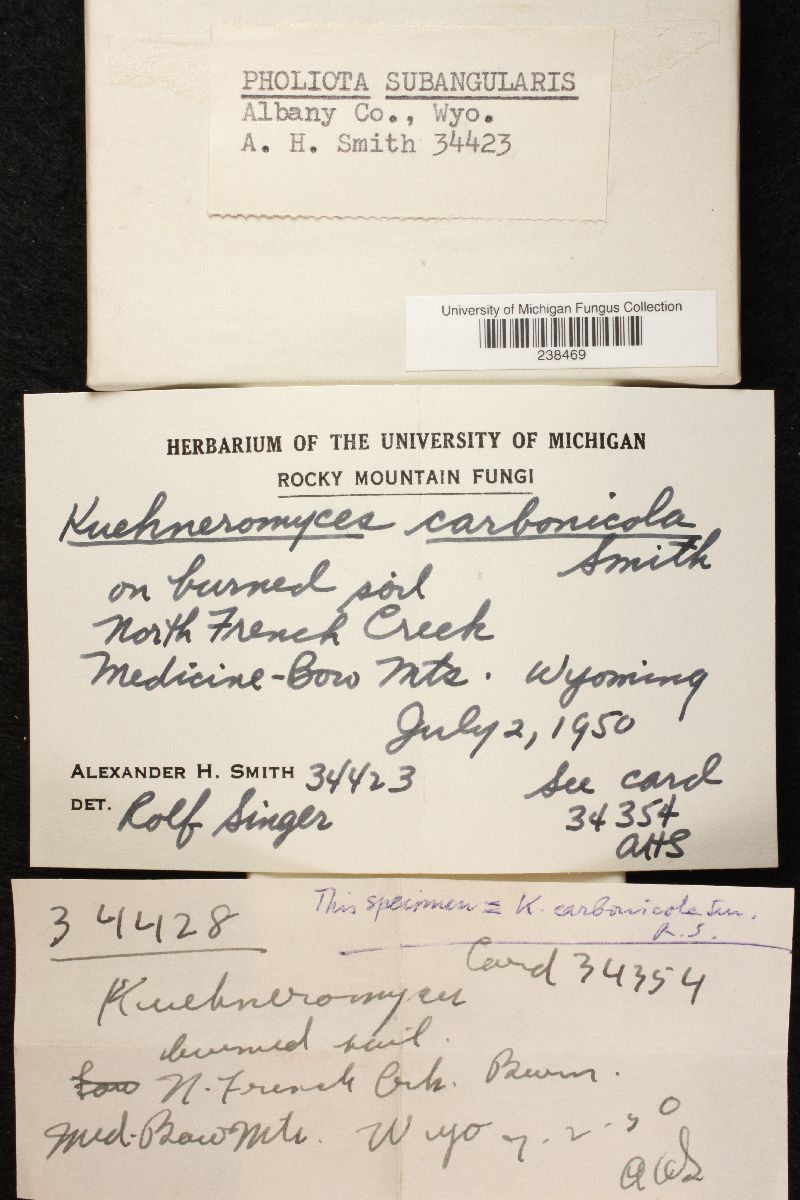 PHOLIOTA SUBANGULARIS
Albany Co., Wyo.
A. H. Smith 34423
University of Michigan Fungus Collection
238469
HERBARIUM OF THE UNIVERSITY OF MICHIGAN
ROCKY MOUNTAIN FUNGI
Kuehneromyces carbonicola
Smith
on burned soil
North French Creek
Medicine-Bow Mts. Wyoming
July 2, 1950
ALEXANDER H. SMITH 34423
DET. Rolf Singer
See card
34354
AHS
34428
This specimen = K. carbonicola Sm.
R.S.
Card 34354
Kuehneromyces
burned soil.
N. French Crk. Burn.
Med. Bow Mts. Wyo 7-2-50
AHS